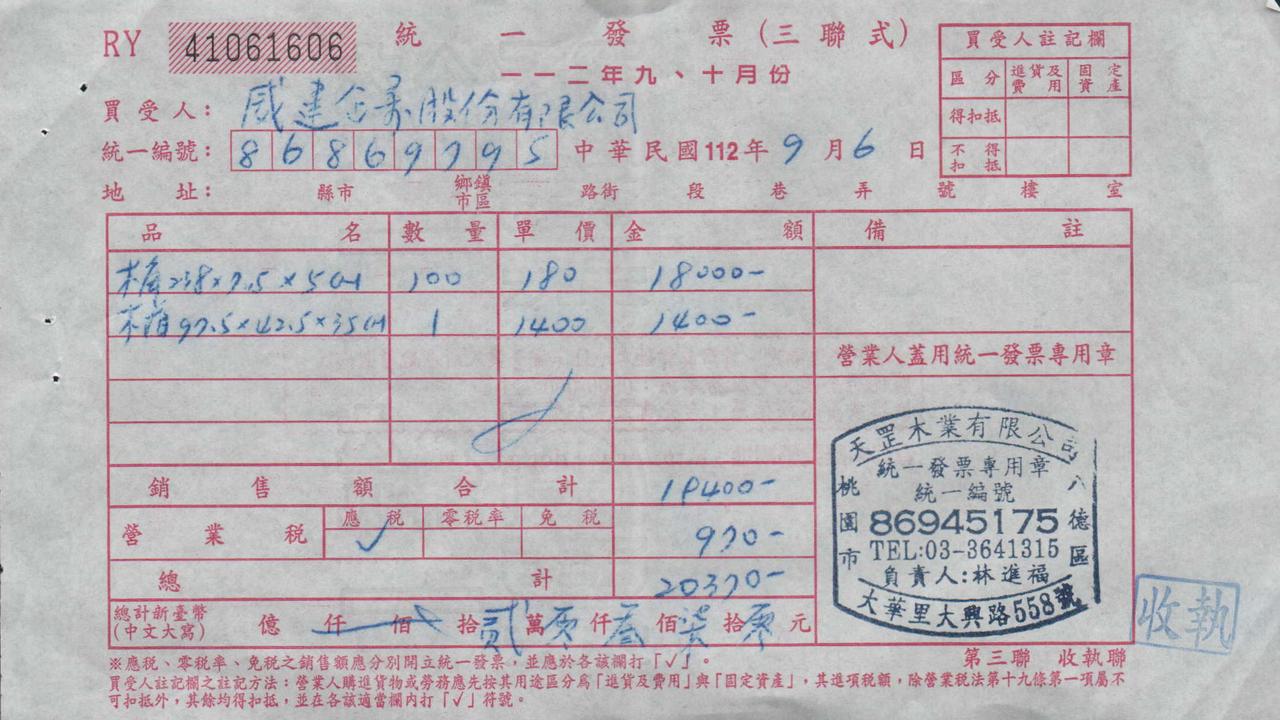 RY 41061606 統一發票(三聯式)
一一二年九、十月份
買受人: 威建企業股份有限公司
統一編號: 86869795 中華民國112年9月6日
地址: 縣市 鄉鎮市區 路街 段 巷 弄 號 樓 室
買受人註記欄
區分 進貨及費用 固定資產
得扣抵
不得扣抵
品名 數量 單價 金額 備註
238×7.5×5cm 100 180 18000-
木箱97.5×42.5×35cm 1 1400 1400-
營業人蓋用統一發票專用章
銷售額合計 19400-
營業稅 應稅 ✓ 零稅率 免稅 970-
總計 20370-
總計新臺幣(中文大寫) 億 仟 佰 拾貳萬零仟叁佰柒拾零元
天罡木業有限公司
統一發票專用章
統一編號
86945175
TEL:03-3641315
負責人:林進福
桃園市八德區
大華里大興路558號
收執
第三聯 收執聯
※應稅、零稅率、免稅之銷售額應分別開立統一發票,並應於各該欄打「✓」。
買受人註記欄之註記方法:營業人購進貨物或勞務應先按其用途區分為「進貨及費用」與「固定資產」,其進項稅額,除營業稅法第十九條第一項屬不
可扣抵外,其餘均得扣抵,並在各該適當欄內打「✓」符號。